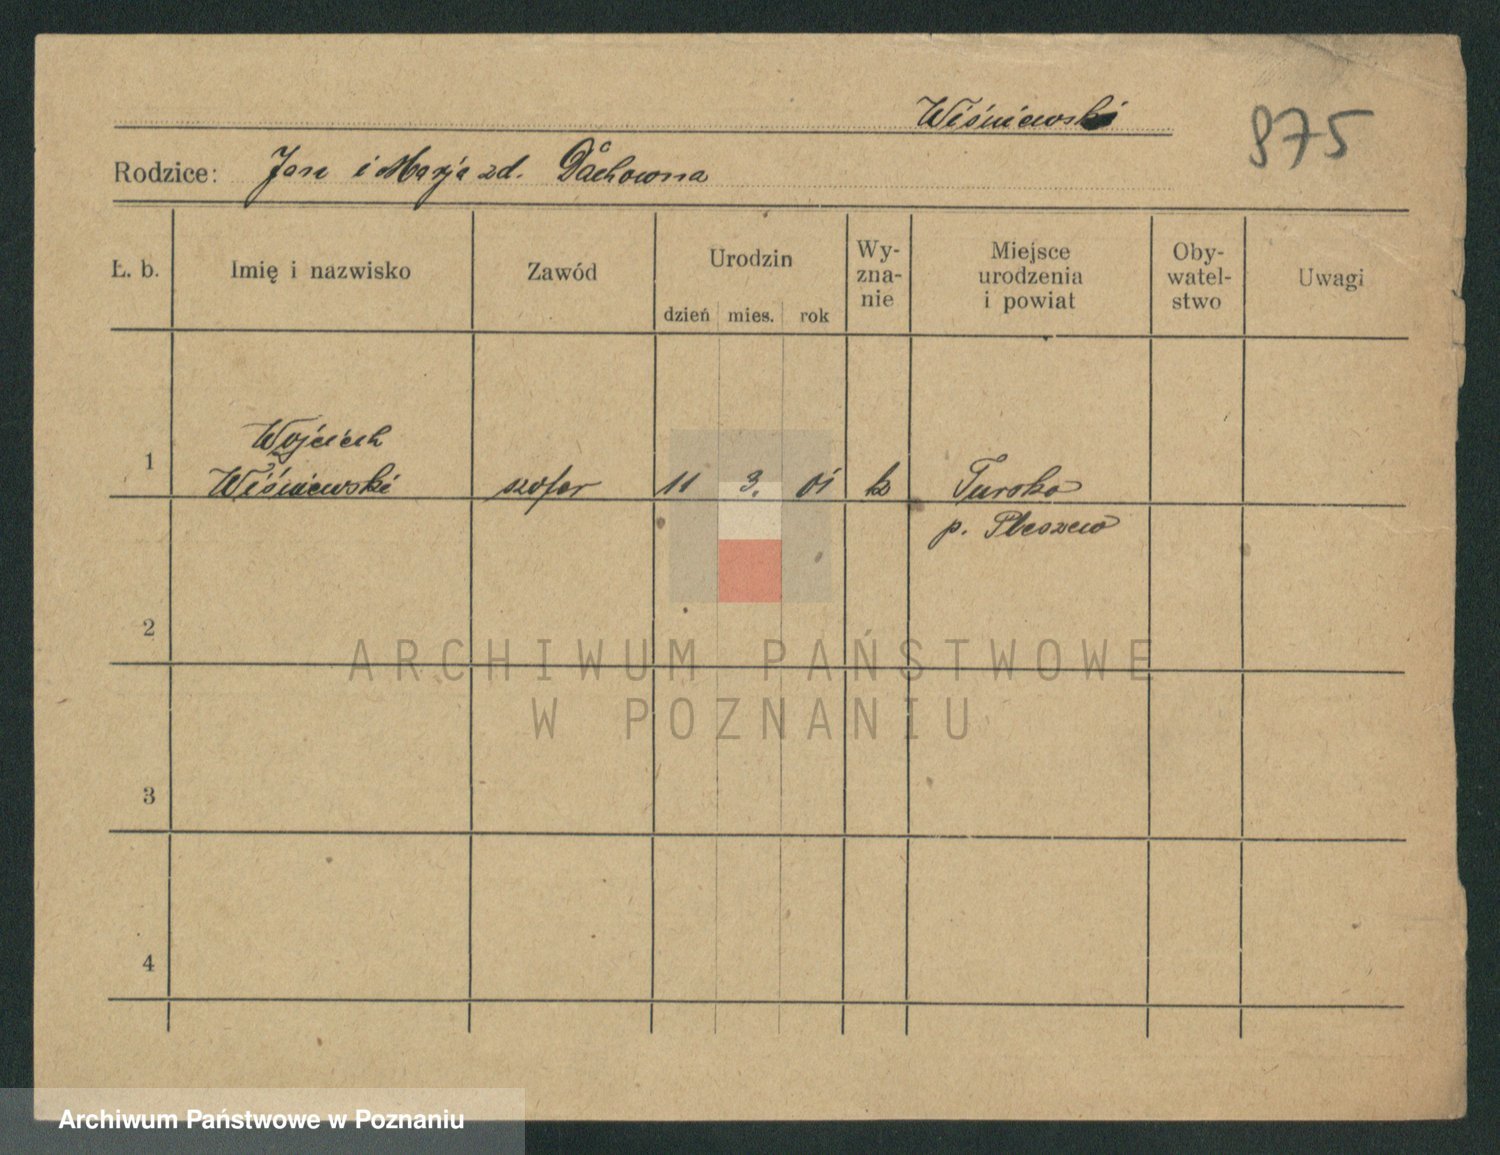 Wiśniewski
975
Rodzice: Jan i Marja zd. Dachowna
Ł. b.
Imię i nazwisko
Zawód
Urodzin
dzień mies. rok
Wy-
zna-
nie
Miejsce
urodzenia
i powiat
Oby-
watel-
stwo
Uwagi
1
Wojciech
Wiśniewski
szofer
11 3. 01
k
Tursko
p. Pleszew
2
3
4
ARCHIWUM PAŃSTWOWE
W POZNANIU
Archiwum Państwowe w Poznaniu